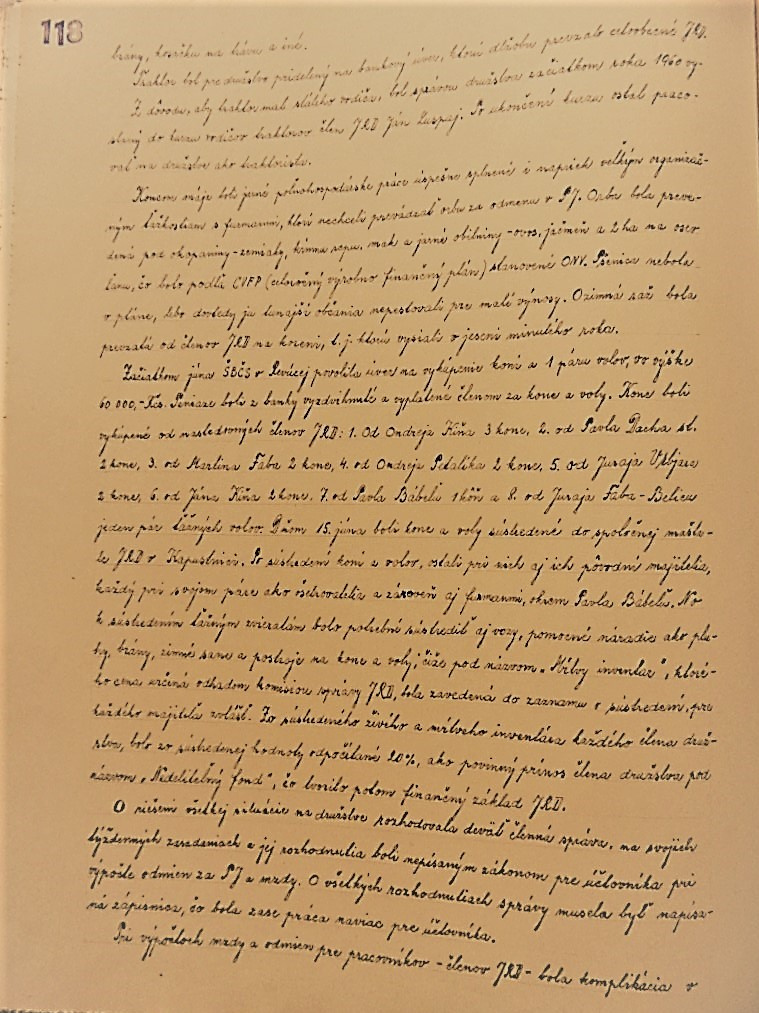 118
brány, kosačku na trávu a iné.
Traktor bol pre družstvo pridelený na bankový úver, ktorú dlžobu prevzalo celoobecné JRD.
Z dôvodu, aby traktor mal stáleho vodiča, bol správou družstva začiatkom roka 1960 vy-
slaný do kurzu vodičov traktorov člen JRD Ján Luspaj. Po ukončení kurzu ostal praco-
vať na družstve ako traktorista.
Koncom mája boli jarné poľnohospodárske práce úspešne splnené i napriek veľkým organizač-
ným ťažkostiam s furmanmi, ktorí nechceli prevádzať orbu za odmenu v PJ. Orba bola preve-
dená pod okopaniny-zemiaky, kŕmnu repu, mak a jarné obilniny-ovos, jačmeň a 2 ha na osev
ľanu, čo bolo podľa CVFP (celoročný výrobno finančný plán) stanovené ONV. Pšenica nebola
v pláne, lebo dovtedy ju tunajší občania nepestovali pre malé výnosy. Ozimná raž bola
prevzatá od členov JRD na koreni, t.j. ktorú vysiali v jeseni minulého roka.
Začiatkom júna ŠBČS v Revúcej povolila úver na vykúpenie koní a 1 páru volov, vo výške
60 000,-Kčs. Peniaze boli z banky vyzdvihnuté a vyplatené členom za kone a voly. Kone boli
vykúpené od nasledovných členov JRD: 1. Od Ondreja Kiňa 3 kone, 2. od Pavla Dacha st.
2 kone, 3. od Martina Faba 2 kone, 4. od Ondreja Petalíka 2 kone, 5. od Juraja Vrbjara
2 kone, 6. od Jána Kiňa 2 kone. 7. od Pavla Bábelu 1 kôň a 8. od Juraja Faba-Belicu
jeden pár ťažných volov. Dňom 15. júna boli kone a voly sústredené do spoločnej mašta-
le JRD v Kapustnici. Po sústredení koní a volov, ostali pri nich aj ich pôvodní majitelia,
každý pri svojom páre ako ošetrovatelia a zároveň aj furmanmi, okrem Pavla Bábelu. No
k sústredeným ťažným zvieratám bolo potrebné sústrediť aj vozy, pomocné náradie ako plu-
hy, brány, zimné sane a postroje na kone a voly, čiže pod názvom „Mŕtvy inventár", ktoré-
ho cena určená odhadom komisiou správy JRD, bola zavedená do záznamu o sústredení, pre
každého majiteľa zvlášť. Zo sústredeného živého a mŕtveho inventára každého člena druž-
stva, bolo zo sústredenej hodnoty odpočítané 20%, ako povinný prínos člena družstva pod
názvom „Nedeliteľný fond", čo tvorilo potom finančný základ JRD.
O riešení všetkej situácie na družstve rozhodovala deväť členná správa, na svojich
týždenných zasadaniach a jej rozhodnutia boli nepísaným zákonom pre účtovníka pri
výpočte odmien za PJ a mzdy. O všetkých rozhodnutiach správy musela byť napísa-
ná zápisnica, čo bola zase práca naviac pre účtovníka.
Pri výpočtoch mzdy a odmien pre pracovníkov - členov JRD - bola komplikácia v